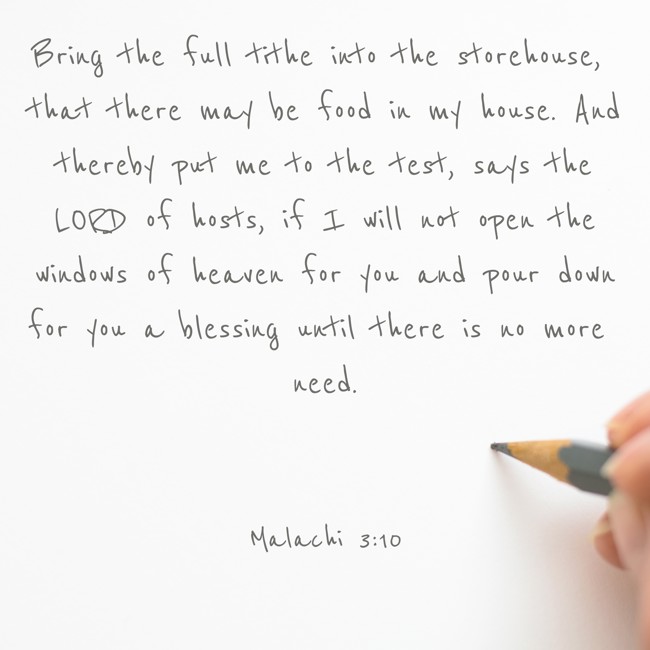 Bring the full tithe into the storehouse,
that there may be food in my house. And
thereby put me to the test, says the
LORD of hosts, if I will not open the
windows of heaven for you and pour down
for you a blessing until there is no more
need.
Malachi 3:10